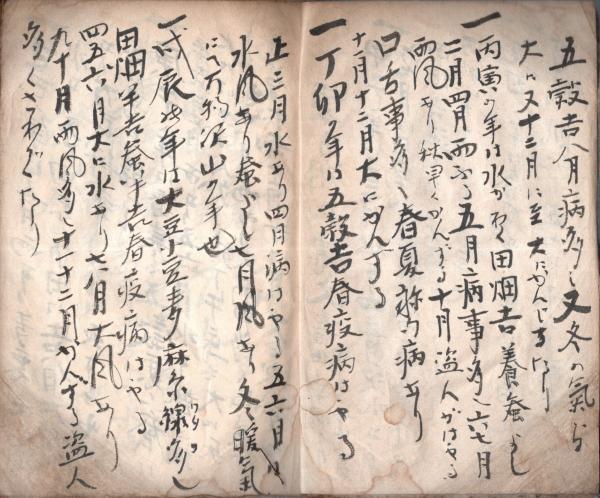 五穀吉八月病多し又冬の氣よ
大に又十二月に至大にかんじすたり
一丙寅の年は水かれ田畑吉養蚕よし
二月四月雨ふる五月病事多し六七月
雨風あり秋早くかんずる十月盗人がはやる
口舌事多し春夏 病あり
十一月十二月大にかんずる
一丁卯の年は五穀吉春疫病はやる
正三月水あり四月病はやる五六月は
水風あり蚕よし七月風あり冬は暖氣
にて万物沢山の年也
一戊辰の年は大豆小豆麦麻糸綿多し
ワタ
田畑半吉蚕半吉春疫病はやる
四五六月大に水あり七八月大風あり
九十月雨風多し十一十二月かんずる盗人
多くさわぐなり